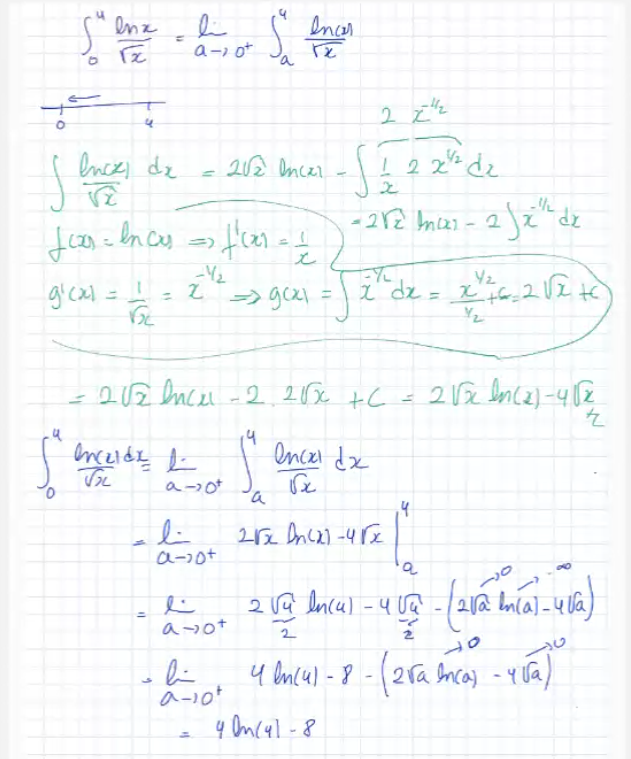 ∫₀⁴ lnx/√x = lim a→0⁺ ∫ₐ⁴ ln(x)/√x
0 4
2 x^-1/2
∫ ln(x)/√x dx = 2√x ln(x) - ∫ 1/x 2 x^1/2 dx
f(x) = ln(x) => f'(x) = 1/x
= 2√x ln(x) - 2 ∫ x^-1/2 dx
g'(x) = 1/√x = x^-1/2 => g(x) = ∫ x^-1/2 dx = x^1/2 / 1/2 + C = 2√x + C
= 2√x ln(x) - 2. 2√x + C = 2√x ln(x) - 4√x
∫₀⁴ ln(x)dx/√x = lim a→0⁺ ∫ₐ⁴ ln(x)/√x dx
= lim a→0⁺ 2√x ln(x) - 4√x |ₐ⁴
→0 → -∞
= lim a→0⁺ 2√4 ln(4) - 4√4 - (2√a ln(a) - 4√a)
2 2
→0 →0
= lim a→0⁺ 4 ln(4) - 8 - (2√a ln(a) - 4√a)
= 4 ln(4) - 8